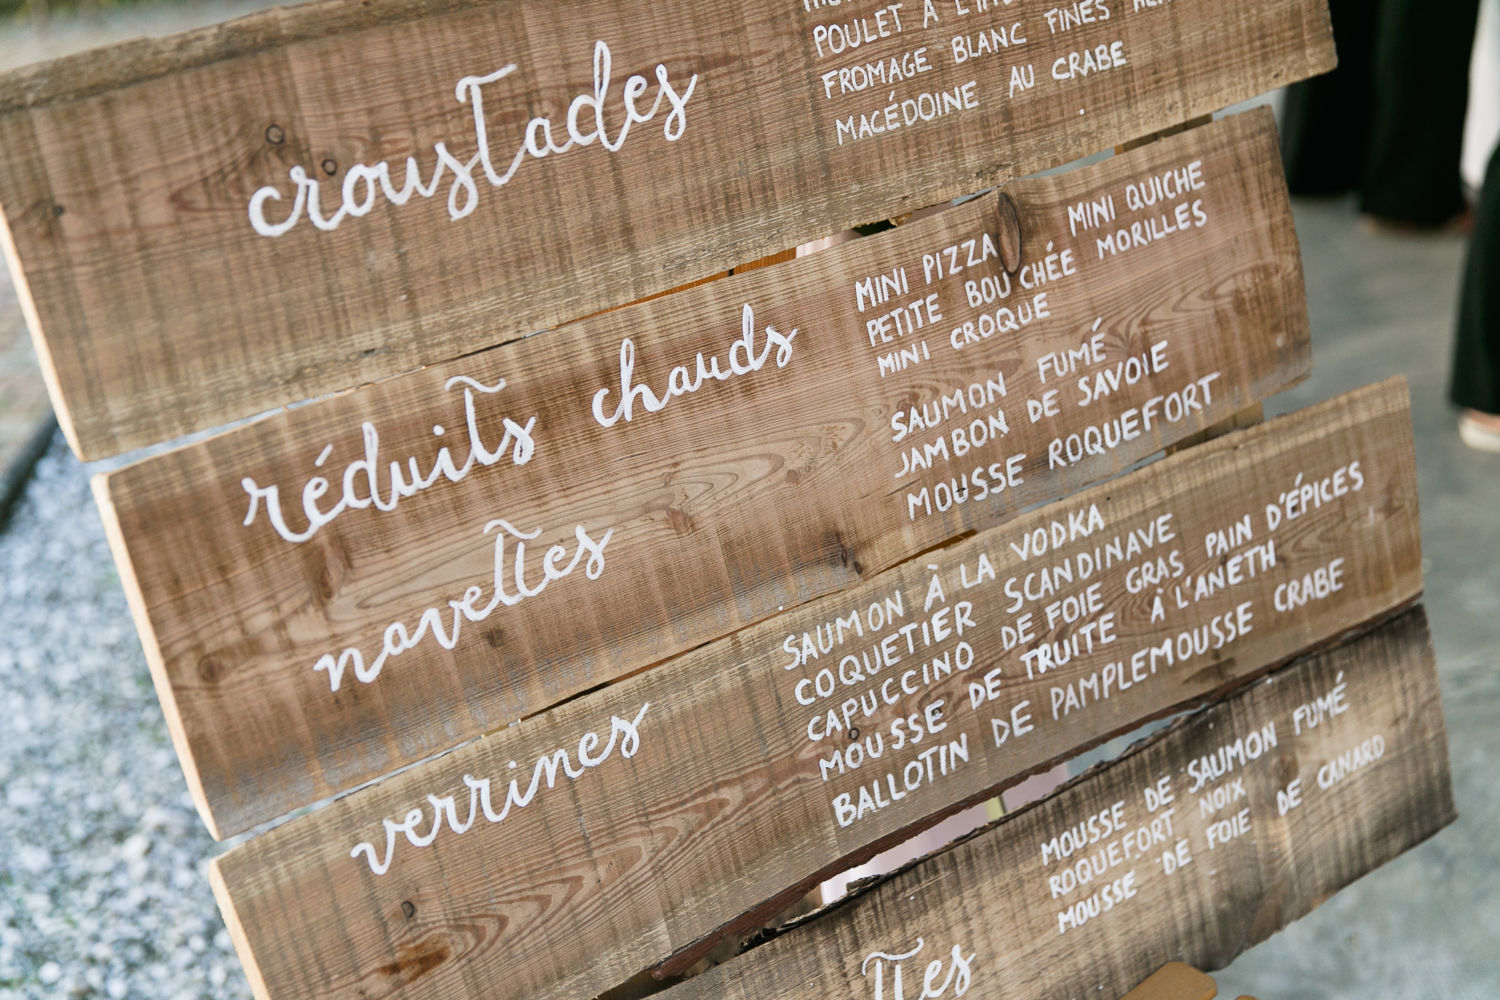 croustades
POULET À
FROMAGE BLANC FINES
MACÉDOINE AU CRABE
réduits chauds
MINI PIZZA MINI QUICHE
PETITE BOUCHÉE MORILLES
MINI CROQUE
navettes
SAUMON FUMÉ
JAMBON DE SAVOIE
MOUSSE ROQUEFORT
verrines
SAUMON À LA VODKA
COQUETIER SCANDINAVE
CAPUCCINO DE FOIE GRAS PAIN D'ÉPICES
MOUSSE DE TRUITE À L'ANETH
BALLOTIN DE PAMPLEMOUSSE CRABE
MOUSSE DE SAUMON FUMÉ
ROQUEFORT NOIX
MOUSSE DE FOIE DE CANARD
ttes